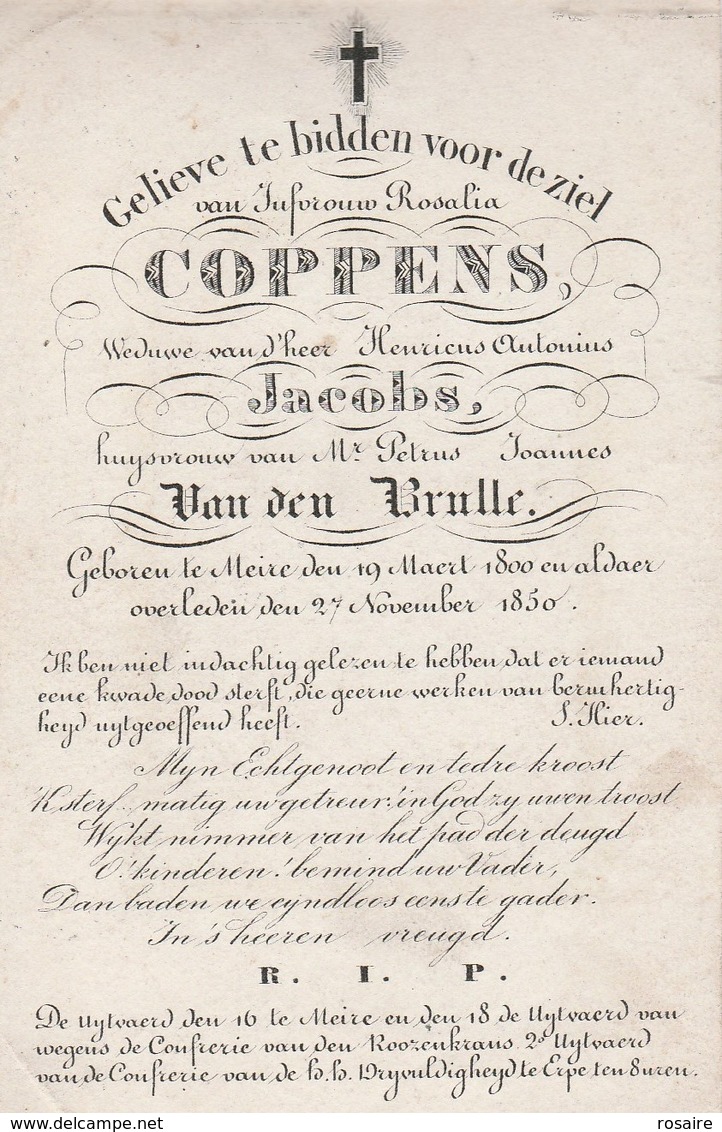 Gelieve te bidden voor de ziel
van Jufvrouw Rosalia
COPPENS,
Weduwe van d'heer Henricus Antonius
Jacobs,
huysvrouw van Mr. Petrus Joannes
Van den Brulle.
Geboren te Meire den 19 Maert 1800 en aldaer
overleden den 27 November 1850.
Ik ben niet indachtig gelezen te hebben dat er iemand
eene kwade dood sterft, die geerne werken van bermhertig-
heyd uytgeoeffend heeft. S. Hier.
Myn Echtgenoot en tedre kroost
'K sterf.. matig uw getreur! in God zy uwen troost
Wykt nimmer van het pad der deugd
O! kinderen! bemind uw Vader,
Dan baden we eyndloos eens te gader.
In 's heeren vreugd.
R. I. P.
De Uytvaerd den 16 te Meire en den 18 de Uytvaerd van
wegens de Confrerie van den Roozenkrans. 2de Uytvaerd
van de Confrerie van de h.h. Dryvuldigheyd te Erpe ten 8 uren.
delcampe.net
rosaire